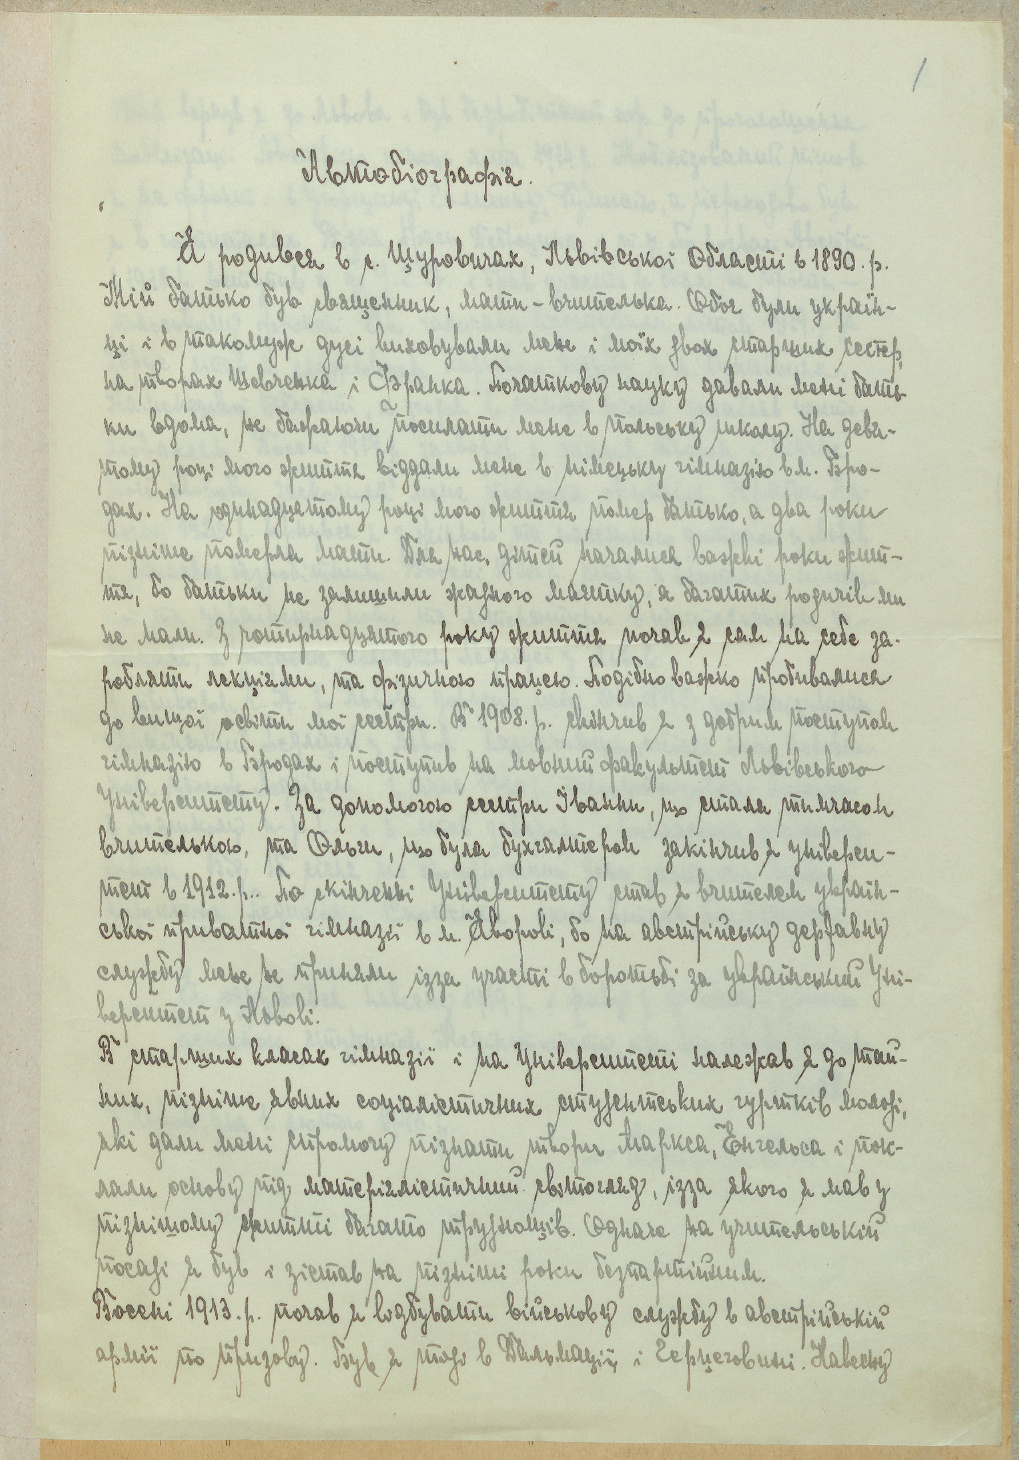 1
Автобіографія.
Я родився в с. Щуровичах, Львівської Области в 1890. р.
Мій батько був священник, мати – вчителька. Обоє були україн-
ці і в такомуж дусі виховували мене і моїх двох старших сестер,
на творах Шевченка і Франка. Початкову науку давали мені бать-
ки вдома, не бажаючи посилати мене в польську школу. На девя-
тому році мого життя віддали мене в німецьку гімназію в м. Бро-
дах. На одинадцятому році мого життя помер батько, а два роки
пізніше померла мати. Для нас, дітей почалися важкі роки жит-
тя, бо батьки не залишили жадного маєтку, а багатих родичів ми
не мали. З чотирнадцятого року життя почав я сам на себе за-
робляти лекціями, та фізичною працею. Подібно важко пробивалися
до вищої освіти мої сестри. В 1908. р. скінчив я з добрим поступом
гімназію в Бродах і поступив на мовний факультет Львівського
Університету. За допомогою сестри Іванни, що стала тимчасом
вчителькою, та Ольги, що була бухгалтером закінчив я універси-
тет в 1912. р.. По скінченні Університету став я вчителем україн-
ської приватної гімназії в м. Яворові, бо на австрійську державну
службу мене не приняли ізза участі в боротьбі за український Уні-
верситет у Львові.
В старших класах гімназії і на Університеті належав я до тай-
них, пізніше явних соціалістичних студентських гуртків молоді,
які дали мені спромогу пізнати твори Маркса, Енгельса і пок-
лали основу під матеріялістичний світогляд, ізза якого я мав у
пізнішому житті багато труднощів. Одначе на учительській
посаді я був і зістав на пізніші роки безпартійним.
Восені 1913. р. почав я відбувати військову службу в австрійській
армії по призову. Був я тоді в Дальмації і Герцеговині. Навесну